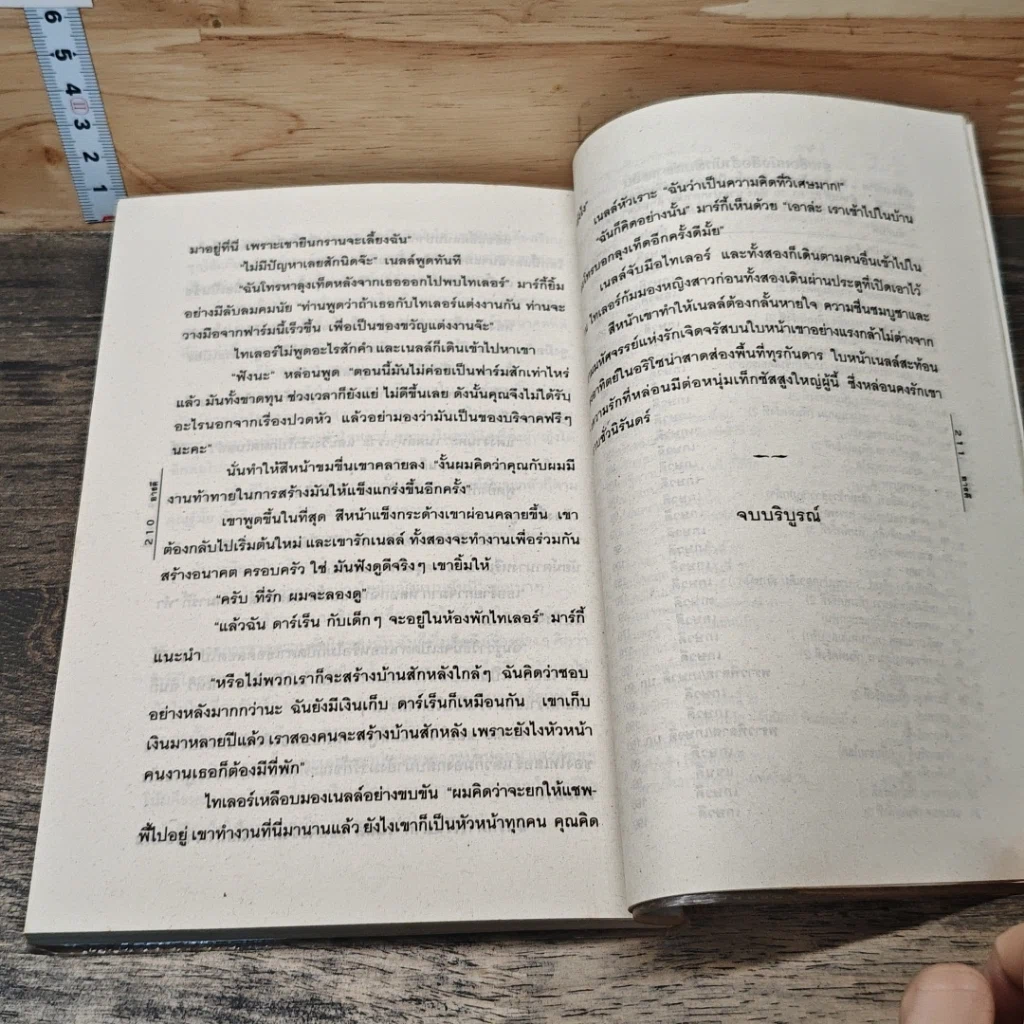 มาอยู่ที่นี่ เพราะเขายืนกรานจะเลี้ยงฉัน"
"ไม่มีปัญหาเลยสักนิดจ๊ะ" เนลล์พูดทันที
"ฉันโทรหาลุงเท็ดหลังจากเธอออกไปพบไทเลอร์" มาร์กี้ยิ้ม
อย่างมีลับลมคมนัย "ท่านพูดว่าถ้าเธอกับไทเลอร์แต่งงานกัน ท่านจะ
วางมือจากฟาร์มนี้เร็วขึ้น เพื่อเป็นของขวัญแต่งงานจ๊ะ"
ไทเลอร์ไม่พูดอะไรสักคำ และเนลล์ก็เดินเข้าไปหาเขา
"ฟังนะ" หล่อนพูด "ตอนนี้มันไม่ค่อยเป็นฟาร์มสักเท่าไหร่
แล้ว มันทั้งขาดทุน ช่วงเวลาก็ยังแย่ ไม่ดีขึ้นเลย ดังนั้นคุณจึงไม่ได้รับ
อะไรนอกจากเรื่องปวดหัว แล้วอย่ามองว่ามันเป็นของบริจาคฟรีๆ
นะคะ"
นั่นทำให้สีหน้าขมขื่นเขาคลายลง "งั้นผมคิดว่าคุณกับผมมี
งานท้าทายในการสร้างมันให้แข็งแกร่งขึ้นอีกครั้ง"
เขาพูดขึ้นในที่สุด สีหน้าแข็งกระด้างเขาผ่อนคลายขึ้น เขา
ต้องกลับไปเริ่มต้นใหม่ และเขารักเนลล์ ทั้งสองจะทำงานเพื่อร่วมกัน
สร้างอนาคต ครอบครัว ใช่ มันฟังดูดีจริงๆ เขายิ้มให้
"ครับ ที่รัก ผมจะลองดู"
"แล้วฉัน ดาร์เร็น กับเด็กๆ จะอยู่ในห้องพักไทเลอร์" มาร์กี้
แนะนำ
"หรือไม่พวกเราก็จะสร้างบ้านสักหลังใกล้ๆ ฉันคิดว่าชอบ
อย่างหลังมากกว่านะ ฉันยังมีเงินเก็บ ดาร์เร็นก็เหมือนกัน เขาเก็บ
เงินมาหลายปีแล้ว เราสองคนจะสร้างบ้านสักหลัง เพราะยังไงหัวหน้า
คนงานเธอก็ต้องมีที่พัก"
ไทเลอร์เหลือบมองเนลล์อย่างขบขัน "ผมคิดว่าจะยกให้แชพ-
พี้ไปอยู่ เขาทำงานที่นี่มานานแล้ว ยังไงเขาก็เป็นหัวหน้าทุกคน คุณคิด
210
เนลล์หัวเราะ "ฉันว่าเป็นความคิดที่วิเศษมาก!"
"ฉันก็คิดอย่างนั้น" มาร์กี้เห็นด้วย "เอาล่ะ เราเข้าไปในบ้าน
โทรบอกลุงเท็ดอีกครั้งดีมั้ย"
เนลล์จับมือไทเลอร์ และทั้งสองก็เดินตามคนอื่นเข้าไปใน
ไทเลอร์ก้มมองหญิงสาวก่อนทั้งสองเดินผ่านประตูที่เปิดเอาไว้
สีหน้าเขาทำให้เนลล์ต้องกลั้นหายใจ ความชื่นชมบูชาและ
มหัศจรรย์แห่งรักเจิดจรัสบนใบหน้าเขาอย่างแรงกล้าไม่ต่างจาก
อาทิตย์ในอริโซน่าสาดส่องพื้นที่ทุรกันดาร ใบหน้าเนลล์สะท้อน
ความรักที่หล่อนมีต่อหนุ่มเท็กซัสสูงใหญ่ผู้นี้ ซึ่งหล่อนคงรักเขา
ชั่วนิรันดร์
จบบริบูรณ์
211
6
5
4
3
2
1